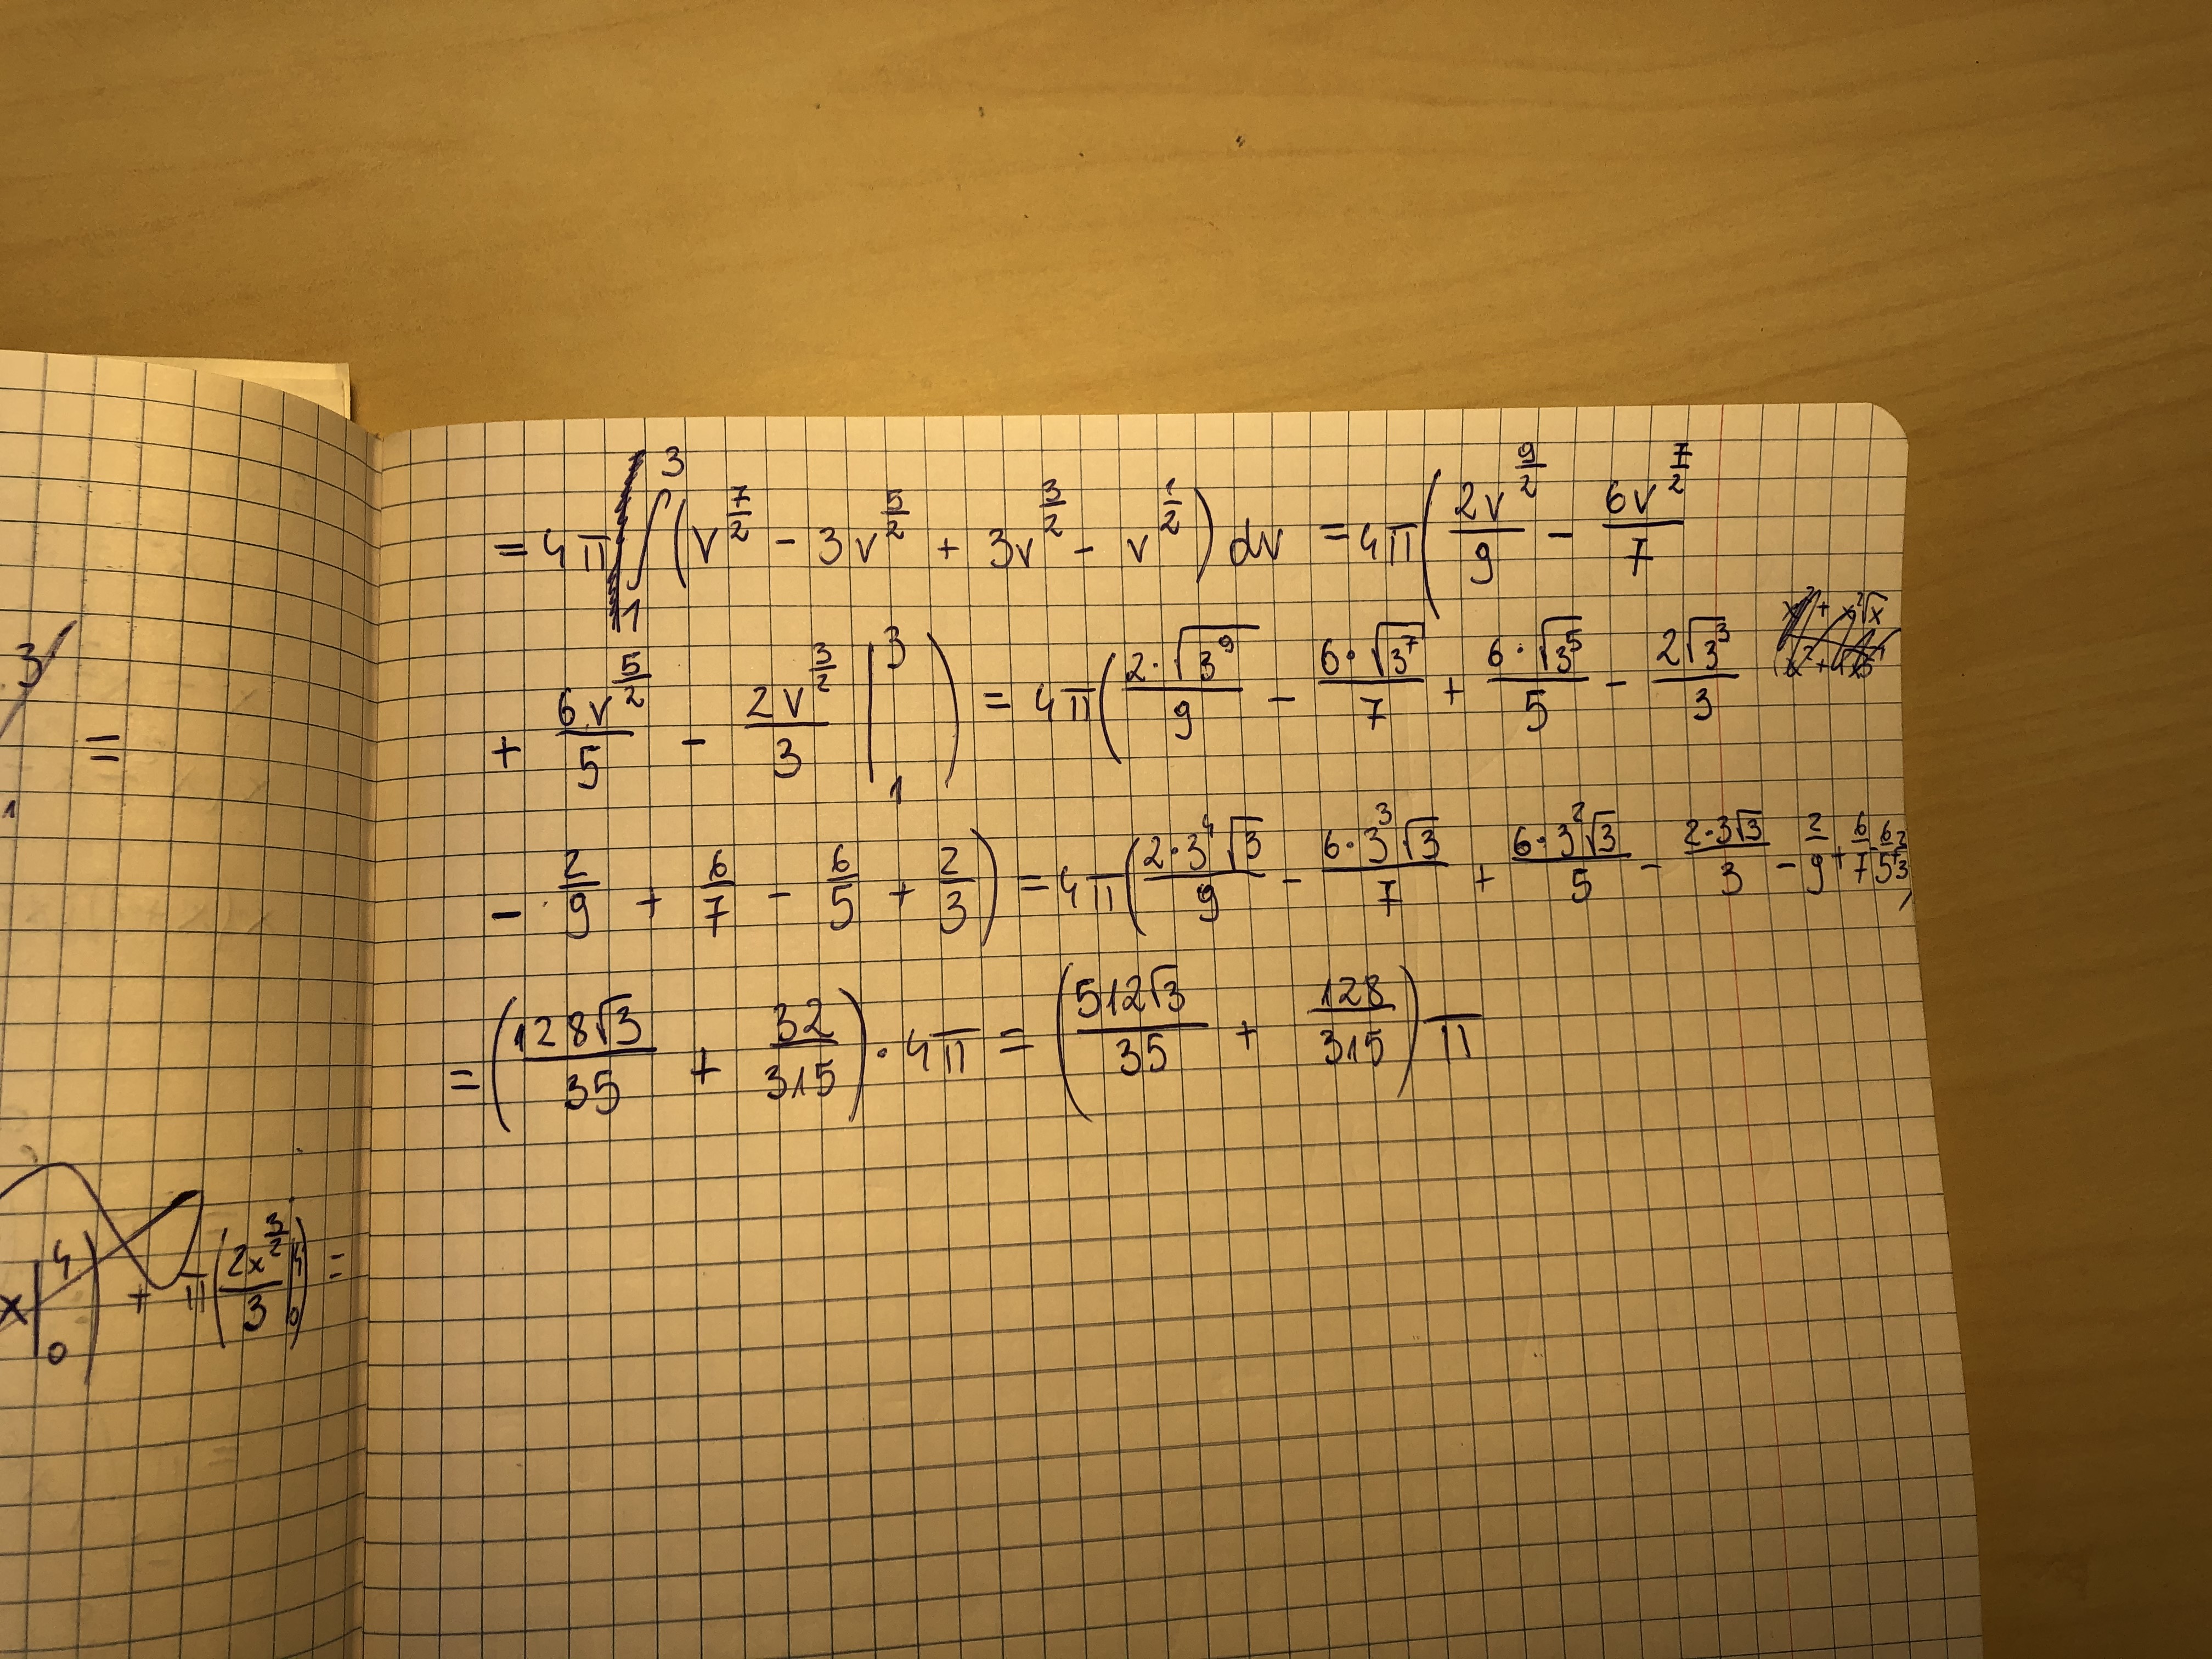 3 =
x |₀⁴ ) + π ( 2x^(3/2)/3 |₀⁴ ) =
= 4π ∫₁³ ( v^(7/2) - 3v^(5/2) + 3v^(3/2) - v^(1/2) ) dv = 4π ( 2v^(9/2)/9 - 6v^(7/2)/7
+ 6v^(5/2)/5 - 2v^(3/2)/3 |₁³ ) = 4π ( 2·√3⁹/9 - 6·√3⁷/7 + 6·√3⁵/5 - 2√3³/3
- 2/9 + 6/7 - 6/5 + 2/3 ) = 4π ( 2·3⁴√3/9 - 6·3³√3/7 + 6·3²√3/5 - 2·3√3/3 - 2/9 + 6/7 - 6/5 + 2/3 )
= ( 128√3/35 + 32/315 ) · 4π = ( 512√3/35 + 128/315 ) π